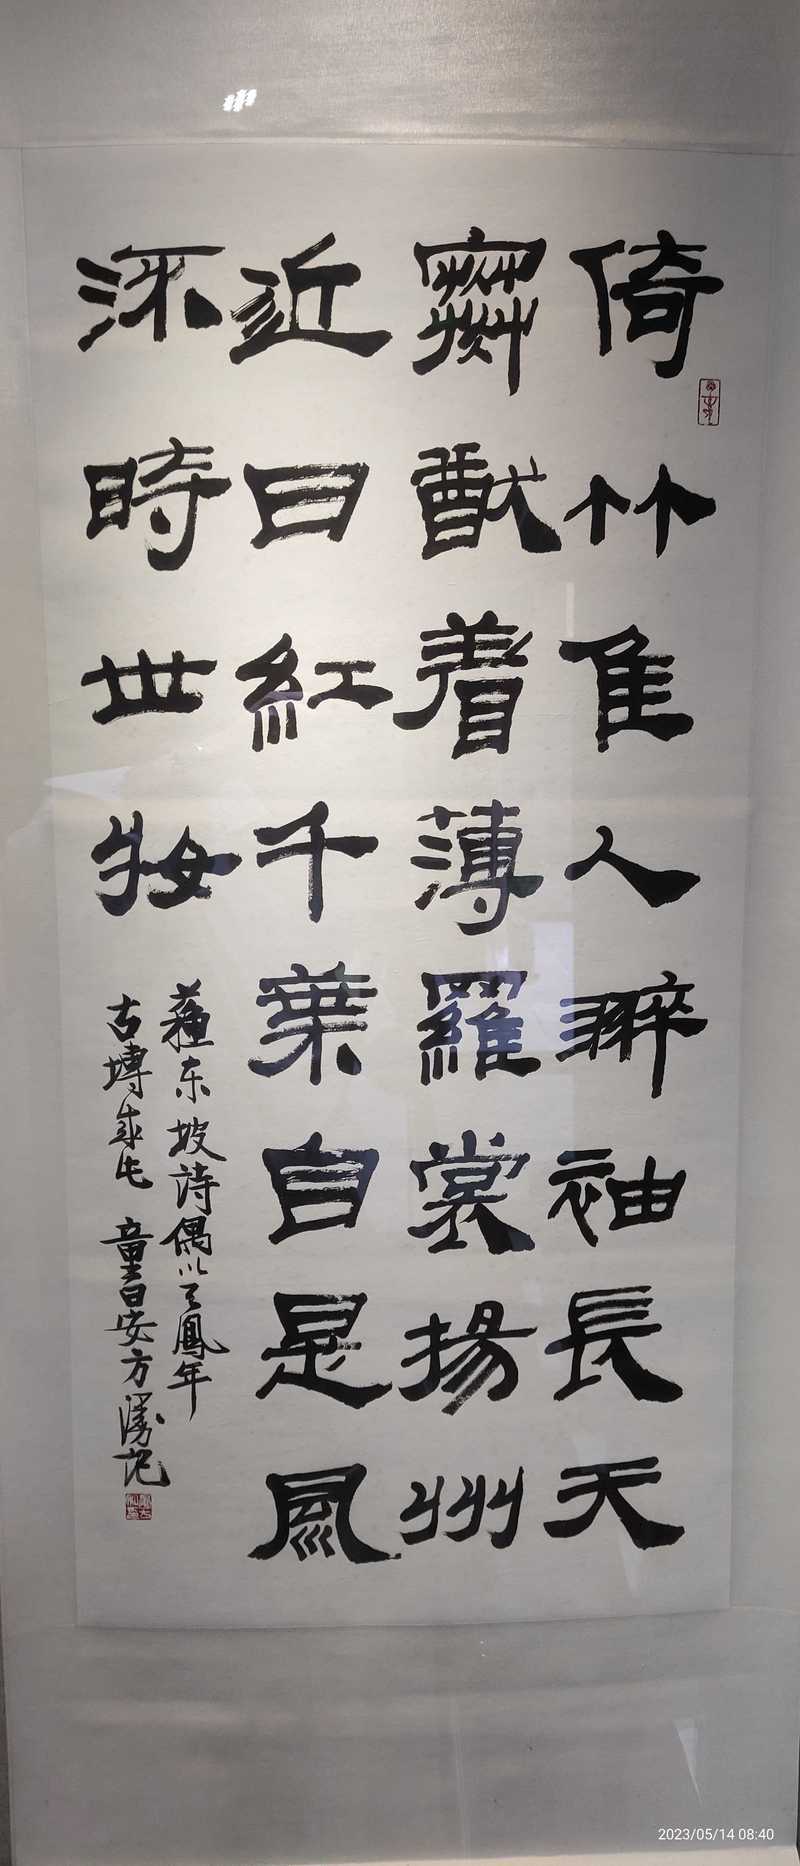 倚竹佳人翠袖長天
寒猷着薄羅裳揚州
近日紅千葉自是風
流時世妝
蘓东坡詩偶以五鳳年
古塼 安方 記
2023/05/14 08:40